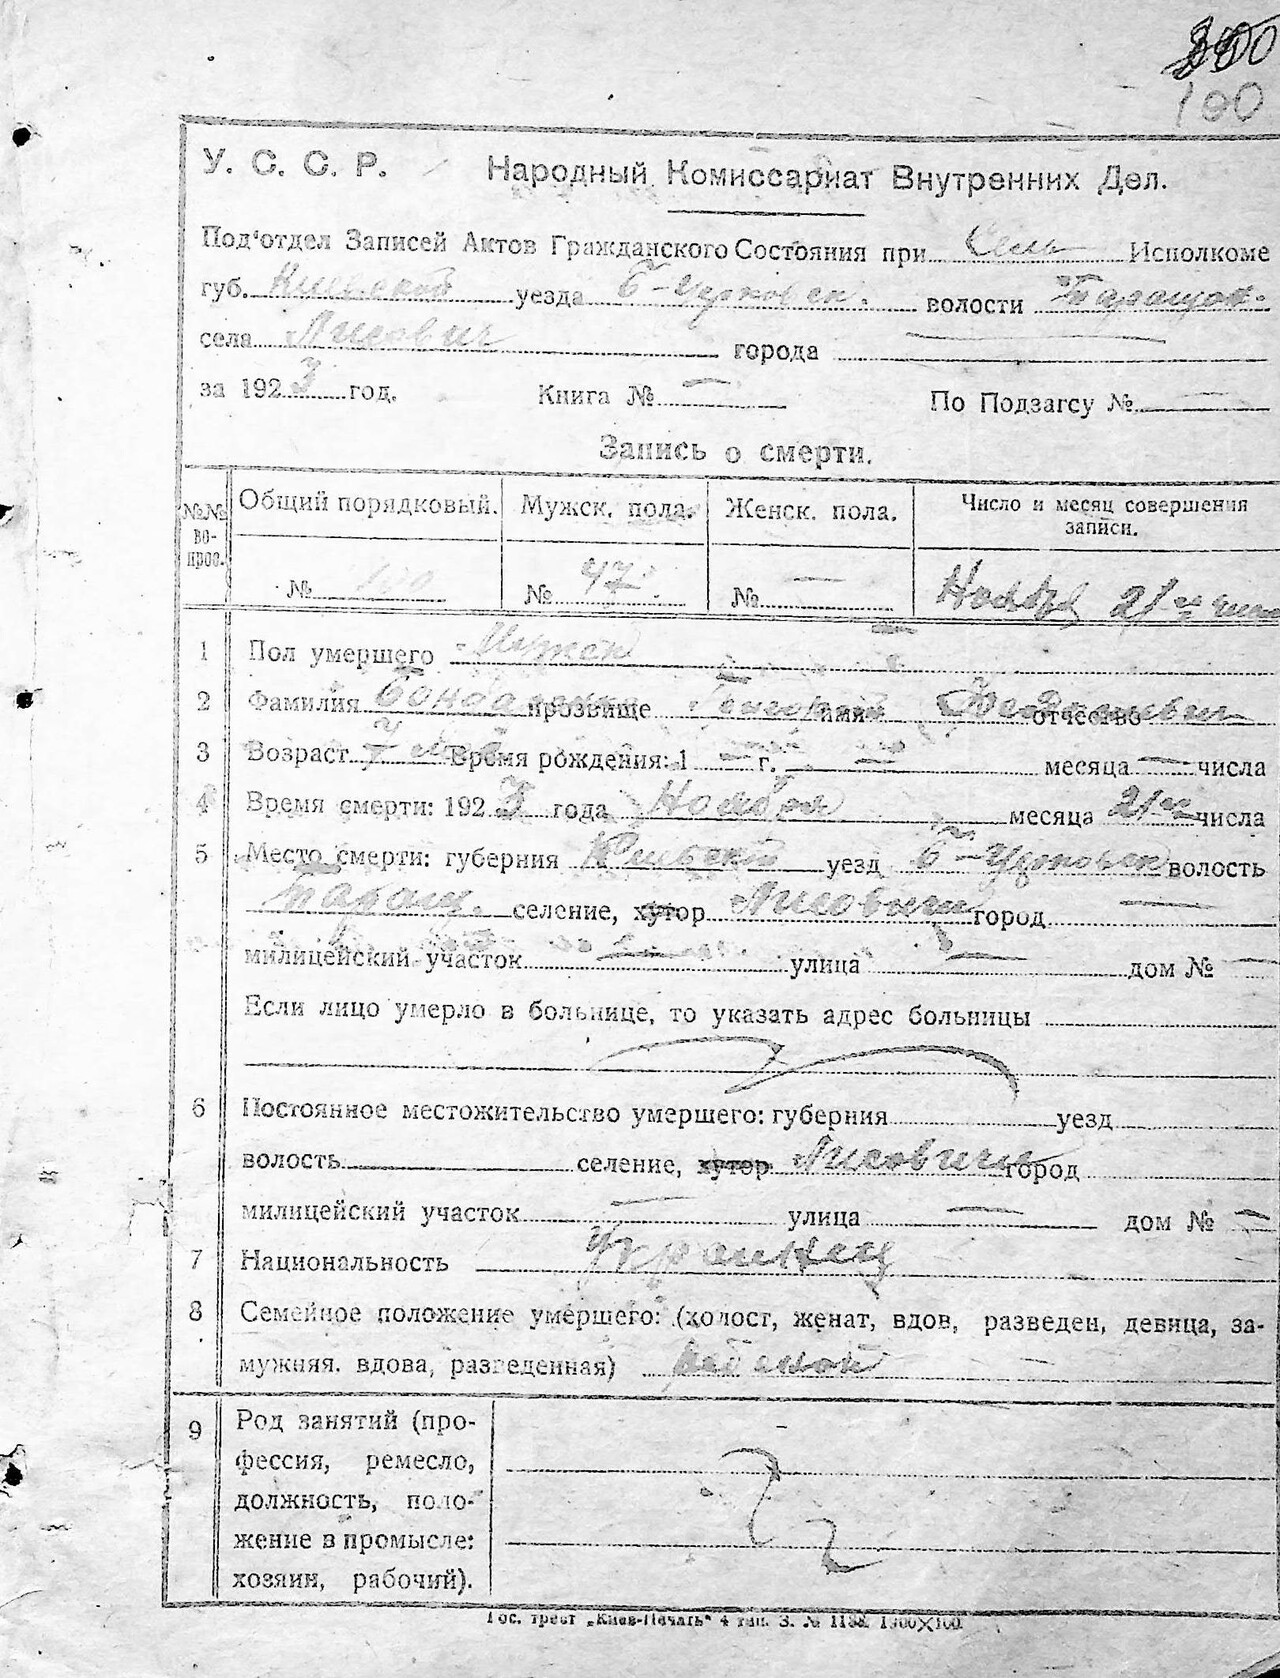 100
У. С. С. Р. Народный Комиссариат Внутренних Дел.
Под'отдел Записей Актов Гражданского Состояния при Сель Исполкоме
губ. Киевской уезда Б-Церковск. волости Таращан.
села Лисович города
за 1923 год. Книга № По Подзагсу №
Запись о смерти.
№№ вопрос. Общий порядковый. Мужск. пола. Женск. пола. Число и месяц совершения записи.
№ 100 № 47 № Ноября 21
1 Пол умершего Мужск
2 Фамилия прозвище имя отчество
3 Возраст Время рождения: 1 г. месяца числа
4 Время смерти: 1923 года Ноября месяца 21 числа
5 Место смерти: губерния уезд Б-Церковск волость
Таращ. селение, хутор Лисовичи город
милицейский участок улица дом №
Если лицо умерло в больнице, то указать адрес больницы
6 Постоянное местожительство умершего: губерния уезд
волость селение, хутор Лисовичи город
милицейский участок улица дом №
7 Национальность Украинец
8 Семейное положение умершего: (холост, женат, вдов, разведен, девица, за-
мужняя. вдова, разведенная)
9 Род занятий (про-
фессия, ремесло,
должность, поло-
жение в промысле:
хозяин, рабочий).
Гос. трест „Киев-Печать" 4 тип. З. №